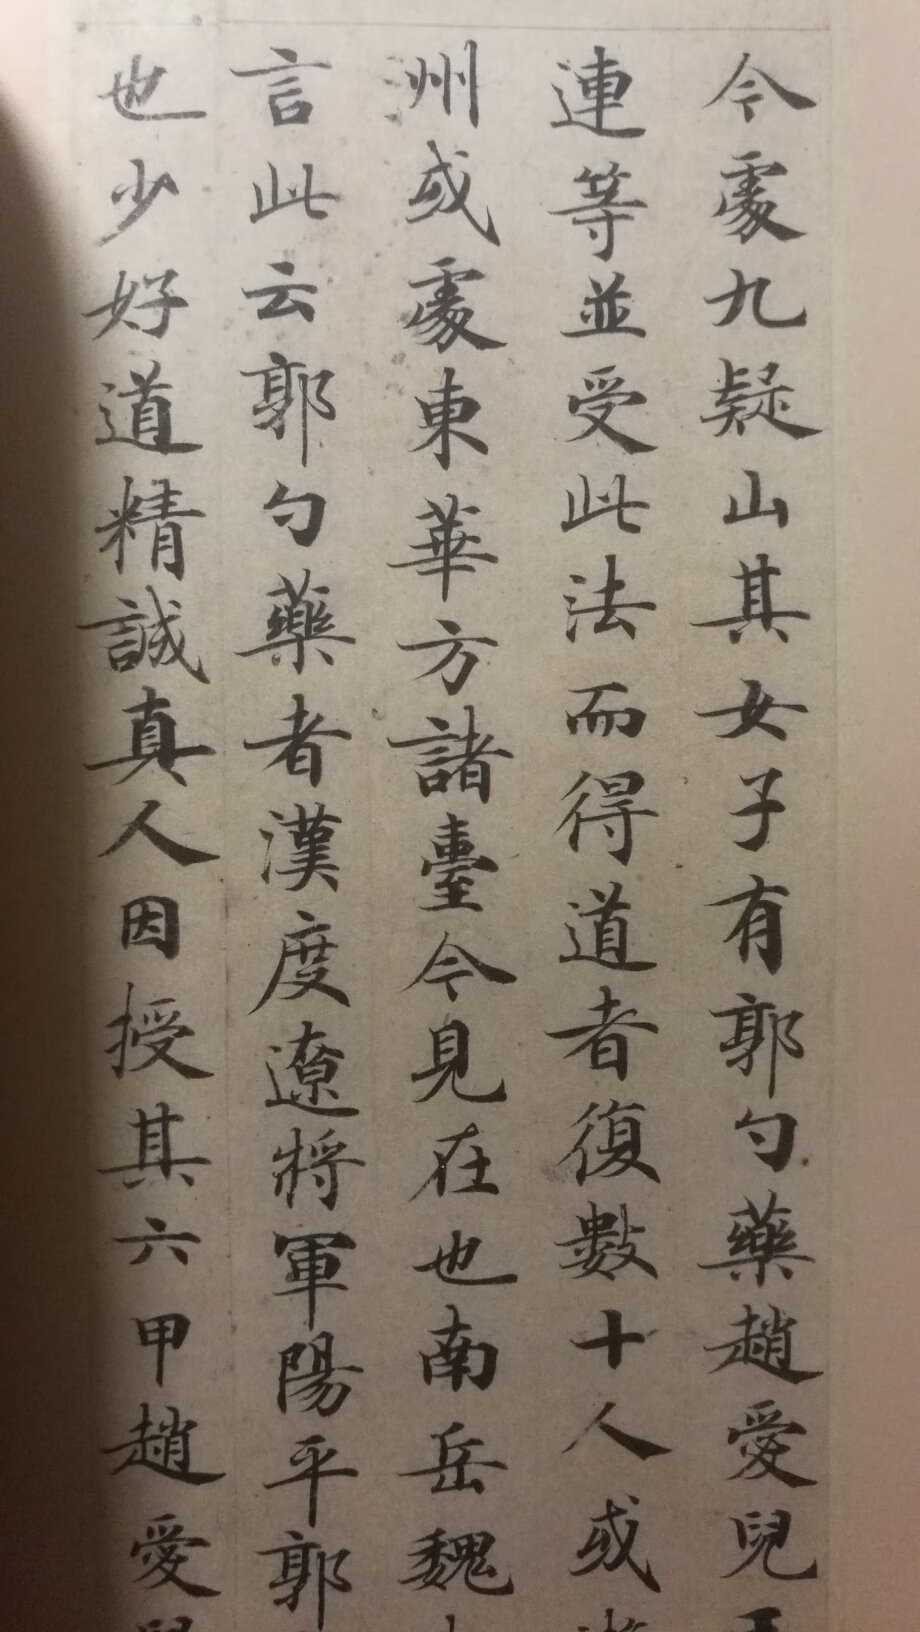 今處九疑山其女子有郭勺藥趙愛兒王
連等並受此法而得道者復數十人或
州或處東華方諸臺今見在也南岳魏
言此云郭勺藥者漢度遼將軍陽平郭
也少好道精誠真人因授其六甲趙愛